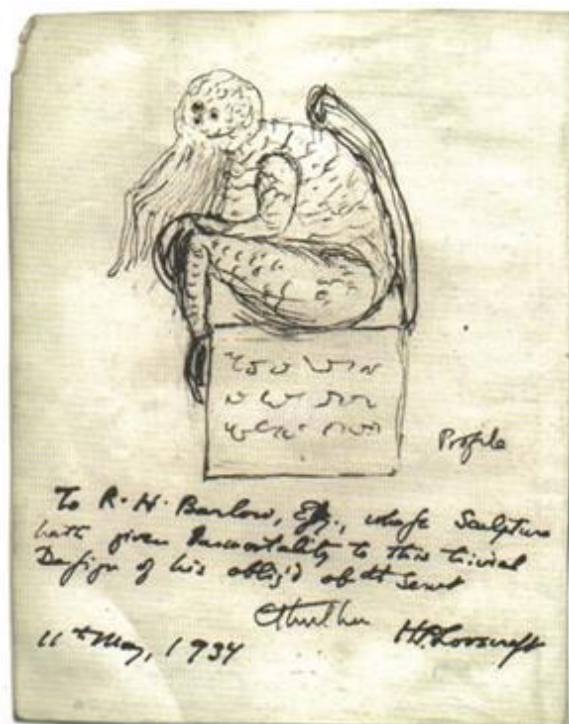 Profile
To R. H. Barlow, Esq., whoſe Sculpture
hath given Immortality to this trivial
Deſign of his oblig'd obt Servt
Cthulhu
HPLovecraft
11th May, 1934